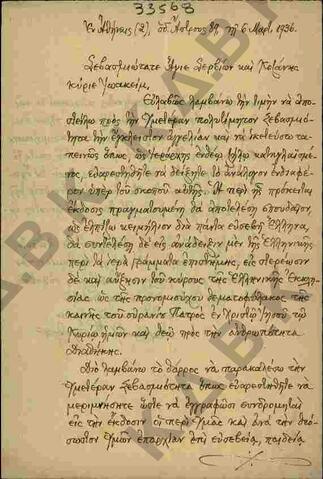 33568
Ἐν Ἀθήναις (2), ὁδ. Ἀσίρους 89, τῇ 6 Μαρτ. 1936.
Σεβασμιώτατε Ἅγιε Σερβίων καὶ Κοζάνης
Κύριε Ἰωακείμ,
Εὐλαβῶς λαμβάνω τὴν τιμὴν νὰ ἀπο-
στείλω πρὸς τὴν Ὑμετέραν πολυτίμητον Σεβασμιό-
τητα τὴν ἐγκλείστον ἀγγελίαν καὶ νὰ ἱκετεύσω τα-
πεινῶς ὅπως, ὡς Ἱεράρχης ἐνθέῳ ζήλῳ κατηγλαϊσμέ-
νος, εὐαρεστηθῆτε νὰ δείξητε τὸ ἀνάλογον ἐνδιαφέ-
ρον ὑπὲρ τοῦ σκοποῦ αὐτῆς. Ἡ περὶ ἧς πρόκειται
ἔκδοσις πραγματουμένη θὰ ἀποτελέσῃ σπουδαῖον,
ὡς ἐλπίζω κειμήλιον διὰ πάντα εὐσεβῆ Ἕλληνα,
θὰ συντελέσῃ δὲ εἰς ἀνάδειξιν μὲν τῆς Ἑλληνικῆς
περὶ τὰ ἱερὰ Γράμματα ἐπιστήμης, εἰς στερέωσιν
δὲ καὶ αὔξησιν τοῦ κύρους τῆς Ἑλληνικῆς Ἐκκλη-
σίας ὡς τῆς προνομιούχου θεματοφύλακος τῆς
καινῆς τοῦ οὐρανίου Πατρὸς ἐν Χριστῷ Ἰησοῦ τῷ
Κυρίῳ ἡμῶν καὶ Θεῷ πρὸς τὴν ἀνθρωπότητα
Διαθήκης.
Διὸ λαμβάνω τὸ θάρρος νὰ παρακαλέσω τὴν
Ὑμετέραν Σεβασμιότητα ὅπως εὐαρεστηθῆτε νὰ
μεριμνήσητε ὥστε νὰ ἐγγραφῶσι συνδρομηταὶ
εἰς τὴν ἔκδοσιν οἱ περὶ Ὑμᾶς καὶ ἀνὰ τὴν θεό-
σωστον Ὑμῶν ἐπαρχίαν ἐπὶ εὐσεβείᾳ, παιδείᾳ